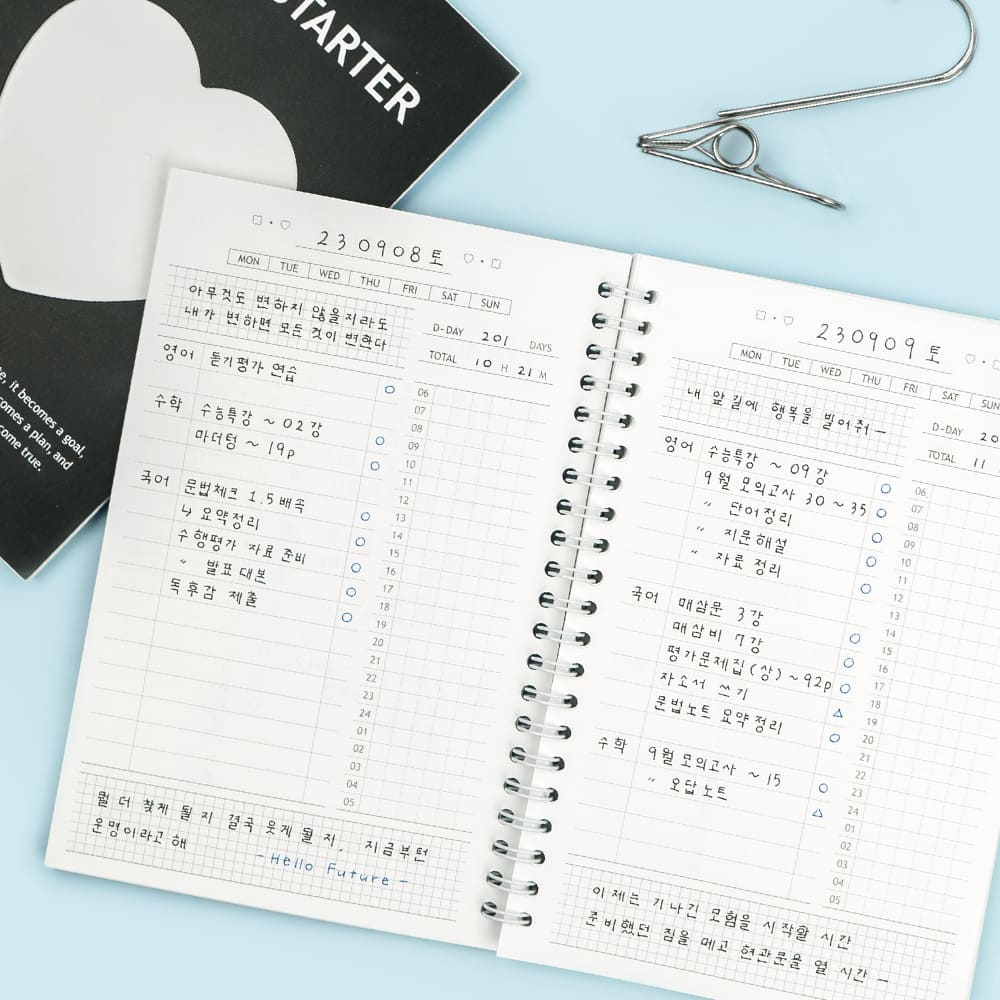 STARTER
it becomes a goal,
comes a plan, and
come true.
230908토
MON TUE WED THU FRI SAT SUN
아무것도 변하지 않을지라도
내가 변하면 모든 것이 변한다
D-DAY 201 DAYS
TOTAL 10 H 21 M
영어 듣기평가 연습
수학 수능특강 ~ 02강
마더텅 ~ 19p
국어 문법체크 1.5배속
↳ 요약정리
수행평가 자료 준비
〃 발표 대본
독후감 제출
06
07
08
09
10
11
12
13
14
15
16
17
18
19
20
21
22
23
24
01
02
03
04
05
뭘 더 찾게 될지 결국 웃게 될지, 지금부턴
운명이라고 해
-Hello Future-
230909토
MON TUE WED THU FRI SAT SUN
내 앞길에 행복을 빌어줘—
D-DAY 20
TOTAL 11
영어 수능특강 ~ 09강
9월 모의고사 30 ~ 35
〃 단어정리
〃 지문해설
〃 자료 정리
국어 매삼문 3강
매삼비 7강
평가문제집(상) ~92p
자소서 쓰기
문법노트 요약정리
수학 9월 모의고사 ~ 15
〃 오답노트
06
07
08
09
10
11
12
13
14
15
16
17
18
19
20
21
22
23
24
01
02
03
04
05
이제는 기나긴 모험을 시작할 시간
준비했던 짐을 메고 현관문을 열 시간—